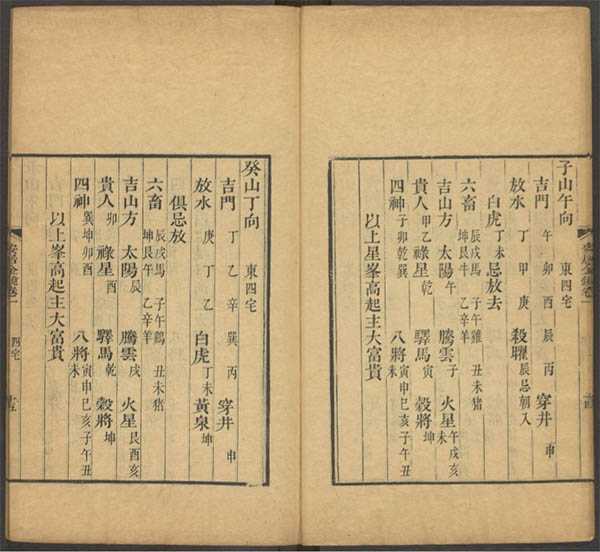 子山午向　東四宅
吉門　午　卯　酉　辰　丙　穿井　申
放水　丁　甲　庚　殺曜　辰忌朝入
白虎　丁未　忌放去
六畜　辰戌馬　子午雞　丑未猪　坤艮牛　乙辛羊
吉山方　太陽　午　騰雲　子　火星　午戌亥未
貴人　甲乙　祿星　乾　驛馬　寅　穀將　坤
四神　子卯乾巽　八將　寅申巳亥子午丑未
以上星峯高起主大富貴
癸山丁向　東四宅
吉門　丁　乙　辛　巽　丙　穿井　申
放水　庚　丁　乙　白虎　丁未　黃泉　坤
俱忌放
六畜　辰戌馬　子午鷄　丑未猪　坤艮午　乙辛羊
吉山方　太陽　辰　騰雲　戌　火星　艮酉亥
貴人　卯　祿星　酉　驛馬　乾　穀將　坤
四神　巽坤卯酉　八將　寅申巳亥子午丑未
以上峯高起主大富貴
安居金鏡卷一　四宅　十五